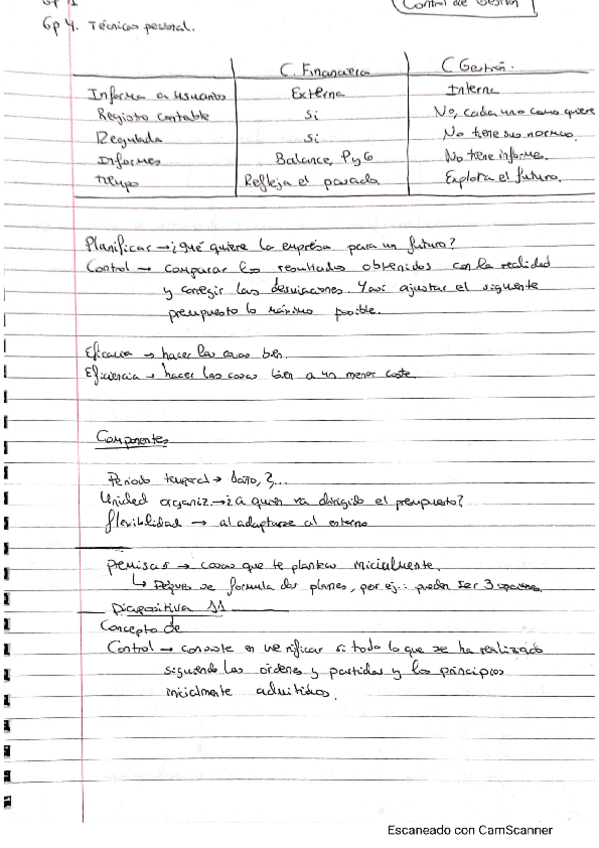 Control de Gestión
Gp 4. Técnicas
C. Financiera C. Gestión.
Informa a usuarios Externa Interna
Registro contable Si No, cada uno como quiere
Regulada Si No tiene sus normas.
Informes Balance, PyG No tiene informes.
Tiempo Refleja el pasado Explora el futuro.
Planificar → ¿Qué quiere la empresa para un futuro?
Control → comparar los resultados obtenidos con la realidad
y corregir las desviaciones. Y así ajustar el siguiente
presupuesto lo máximo posible.
Eficacia → hacer las cosas bien.
Eficiencia → hacer las cosas bien a un menor coste
Componentes
Periodo temporal →
Unidad organiz. → ¿a quien va dirigido el presupuesto?
flexibilidad → al adaptarse al entorno
premisas → cosas que te planteas inicialmente.
↳ se formula dos planes, por ej.: pueden ser 3
Diapositiva 11
Concepto de
Control → consiste en verificar si todo lo que se ha realizado
siguiendo las ordenes y partidas y los principios
inicialmente admitidos.
Escaneado con CamScanner